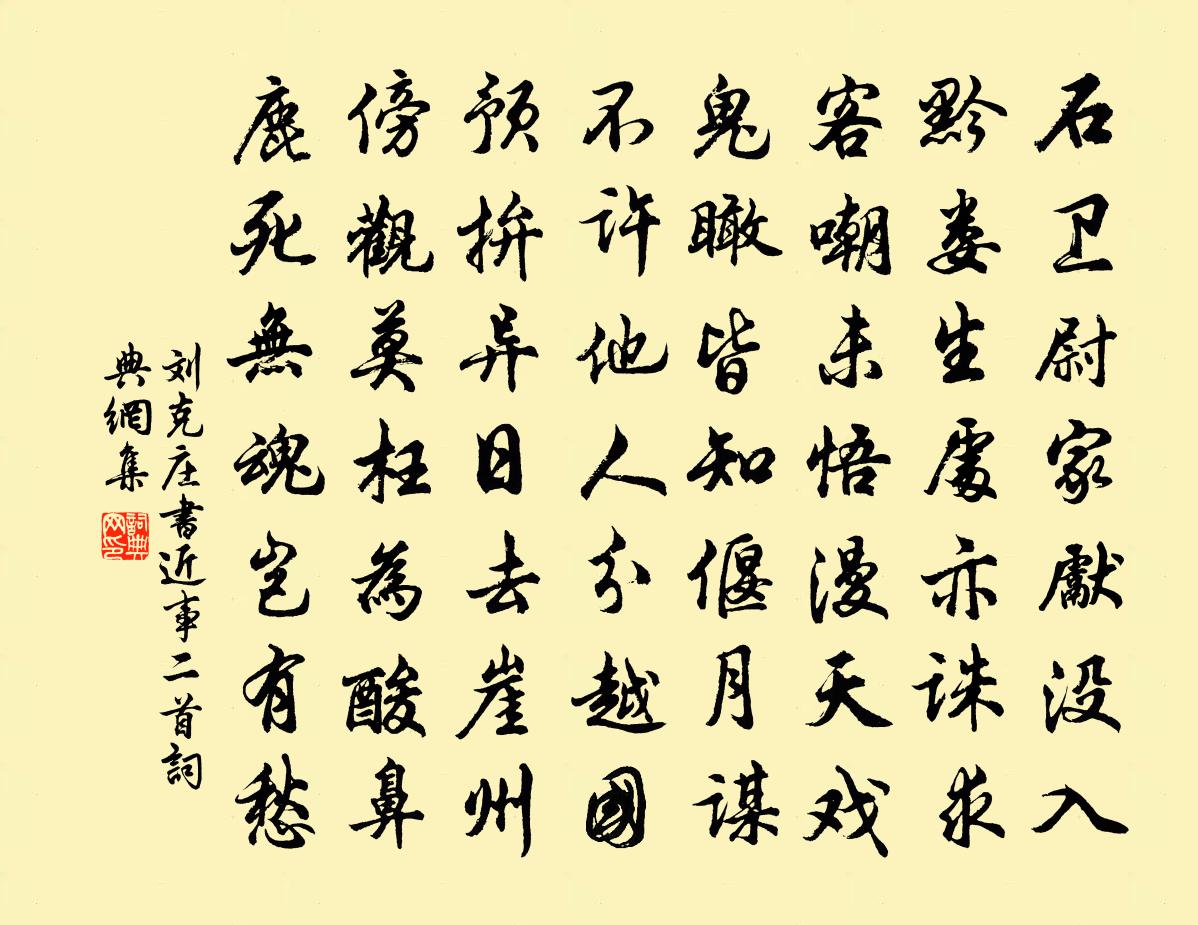 石卫尉家獻没入
黔娄生處亦誅求
客嘲未悟漫天戏
鬼瞰皆知偃月谋
不许他人分越國
预拚异日去崖州
傍觀莫枉為酸鼻
鹿死無魂岂有愁
刘克庄書近事二首詞
典網集
詞典网印